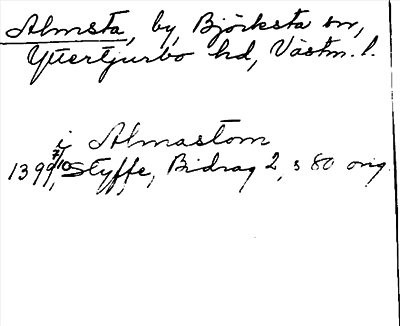 Almsta, by, Björksta sn,
Yttertjurbo hd, Västm. l.
i Almastom
1399 7/10, Styffe, Bidrag 2, s 80 orig